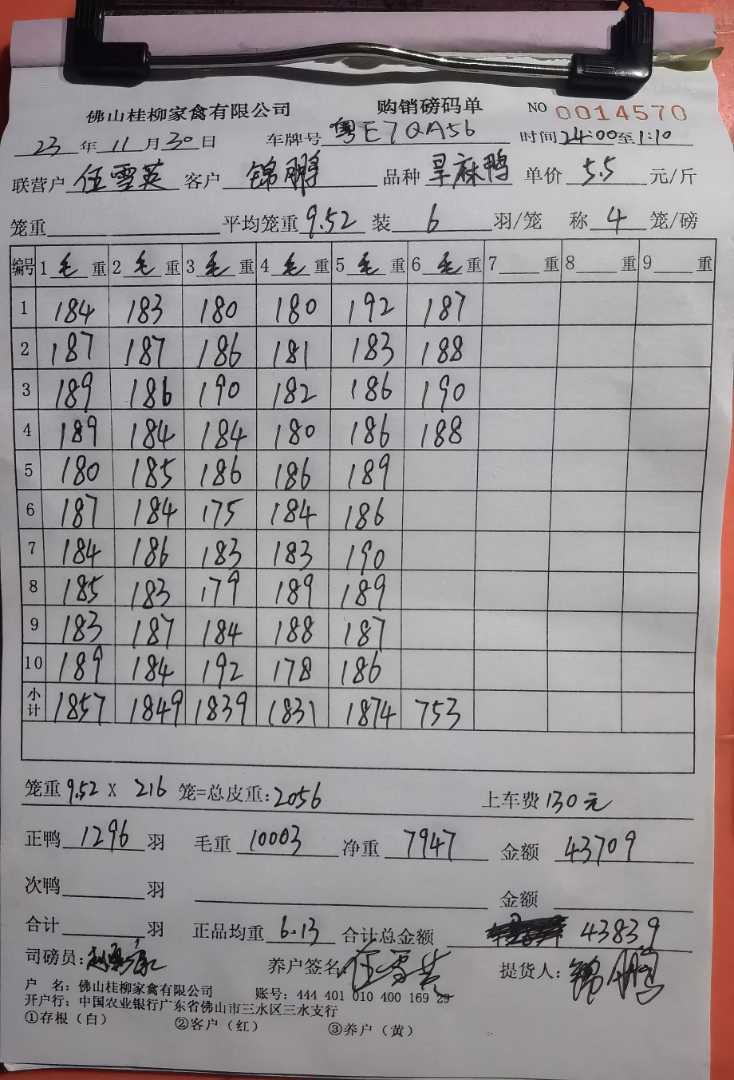 佛山桂柳家禽有限公司 购销磅码单 NO 0014570
23 年 11 月 30 日 车牌号 粤E7QA56 时间 24:00 至 1:10
联营户 伍雪英 客户 锦鹏 品种 旱麻鸭 单价 5.5 元/斤
笼重 平均笼重 9.52 装 6 羽/笼 称 4 笼/磅
编号 1 毛 重 2 毛 重 3 毛 重 4 毛 重 5 毛 重 6 毛 重 7 重 8 重 9 重
1 184 183 180 180 192 187
2 187 187 186 181 183 188
3 189 186 190 182 186 190
4 189 184 184 180 186 188
5 180 185 186 186 189
6 187 184 175 184 186
7 184 186 183 183 190
8 185 183 179 189 189
9 183 187 184 188 187
10 189 184 192 178 186
小计 1857 1849 1839 1831 1874 753
笼重 9.52 X 216 笼=总皮重: 2056 上车费 130元
正鸭 1296 羽 毛重 10003 净重 7947 金额 43709
次鸭 羽 金额
合计 羽 正品均重 6.13 合计总金额 43839
司磅员: 养户签名: 伍雪英 提货人: 锦鹏
户 名: 佛山桂柳家禽有限公司 账号: 444 401 010 400 169 29
开户行: 中国农业银行广东省佛山市三水区三水支行
①存根(白) ②客户(红) ③养户(黄)